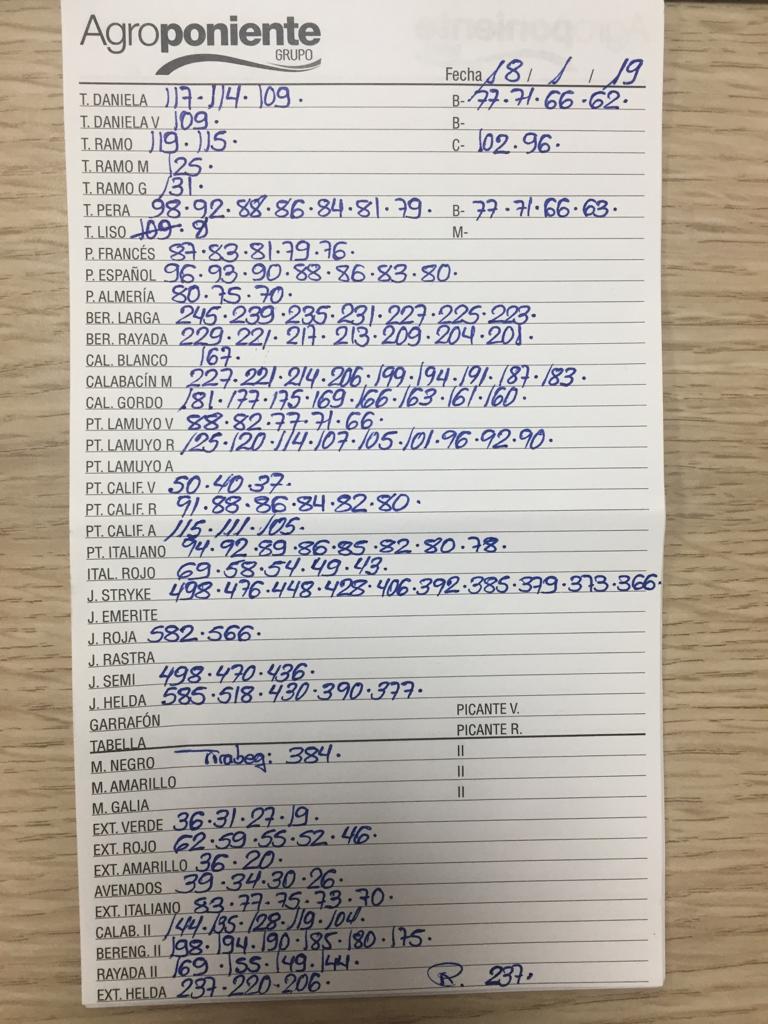 Agroponiente
GRUPO
Fecha 18 / 1 / 19
T. DANIELA 117·114·109· B- 77·71·66·62·
T. DANIELA V 109· B-
T. RAMO 119·115· C- 102·96·
T. RAMO M 125·
T. RAMO G 131·
T. PERA 98·92·88·86·84·81·79· B- 77·71·66·63·
T. LISO M-
P. FRANCÉS 87·83·81·79·76·
P. ESPAÑOL 96·93·90·88·86·83·80·
P. ALMERÍA 80·75·70·
BER. LARGA 245·239·235·231·227·225·223·
BER. RAYADA 229·221·217·213·209·204·201·
CAL. BLANCO 167·
CALABACÍN M 227·221·214·206·199·194·191·187·183·
CAL. GORDO 181·177·175·169·166·163·161·160·
PT. LAMUYO V 88·82·77·71·66·
PT. LAMUYO R 125·120·114·107·105·101·96·92·90·
PT. LAMUYO A
PT. CALIF. V 50·40·37·
PT. CALIF. R 91·88·86·84·82·80·
PT. CALIF. A 115·111·105·
PT. ITALIANO 94·92·89·86·85·82·80·78·
ITAL. ROJO 69·58·54·49·43·
J. STRYKE 498·476·448·428·406·392·385·379·373·366·
J. EMERITE
J. ROJA 582·566·
J. RASTRA
J. SEMI 498·470·436·
J. HELDA 585·518·430·390·377·
GARRAFÓN PICANTE V.
TABELLA PICANTE R.
M. NEGRO Tirabeg: 384· II
M. AMARILLO II
M. GALIA II
EXT. VERDE 36·31·27·19·
EXT. ROJO 62·59·55·52·46·
EXT. AMARILLO 36·20·
AVENADOS 39·34·30·26·
EXT. ITALIANO 83·77·75·73·70·
CALAB. II 144·135·128·119·104·
BERENG. II 198·194·190·185·180·175·
RAYADA II 169·155·149·144·
EXT. HELDA 237·220·206· R. 237·